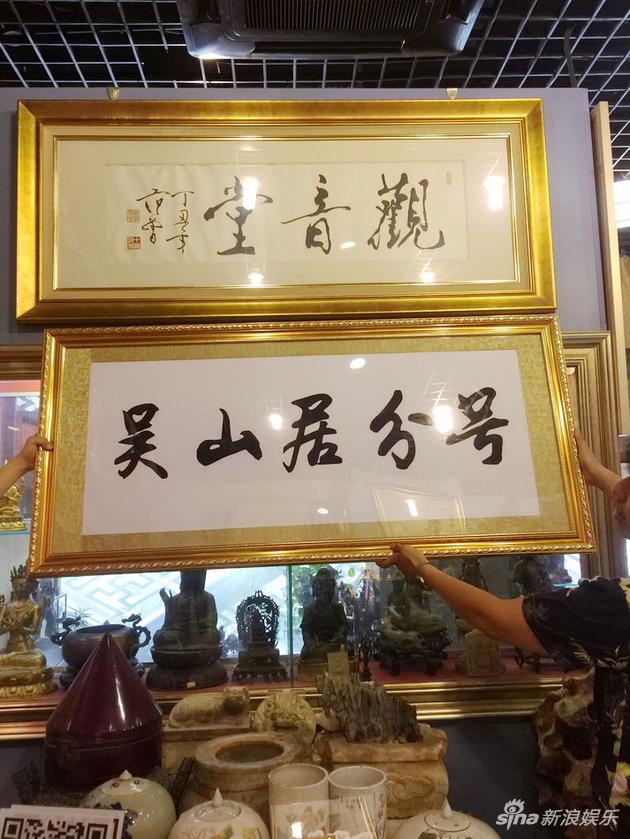 觀音堂
丁丑年
范曾
吴山居分号
sina新浪娱乐